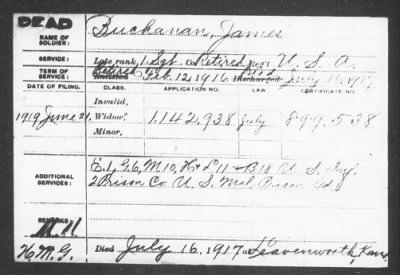 DEAD
NAME OF SOLDIER: Buchanan, James
SERVICE: Late rank, 1 Sgt. Retired U. S. A.
TERM OF SERVICE: Retired Feb. 12, 1916 Died July 16, 1917
DATE OF FILING. CLASS. APPLICATION NO. LAW. CERTIFICATE NO.
Invalid,
1919 June 21, Widow, 1.142.938 July 899.538
Minor,
ADDITIONAL SERVICES: E. 1, G 6, M 10, H & L 11 - B 18 U. S. Inf.
2 Prison Co. U. S. Mil. Prison
REMARKS:
H. M. G. Died July 16, 1917 Leavenworth, Kans.